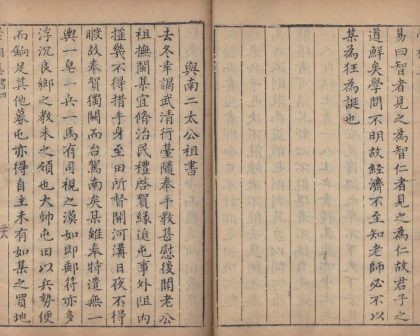 易曰智者見之為智仁者見之為仁故君子之
道鮮矣學問不明故經濟不至知老師必不以
某為狂為誕也
與南二太公祖書
去冬幸謁武清行臺隨奉手教甚慰後聞老公
祖撫閩某宜脩治民禮啓賀緣迫屯事外阻內
撓幾不得措手身至田所督開河溝日夜不得
暇故奉賀獨闕而台駕南矣某雖奉特遣無一
輿一皂一兵一馬有司視之漠如即郵符亦多
浮沉良鄉之教未之領也大帥屯田以兵勢便
而餉足其他墓屯亦得自主未有如某之買地